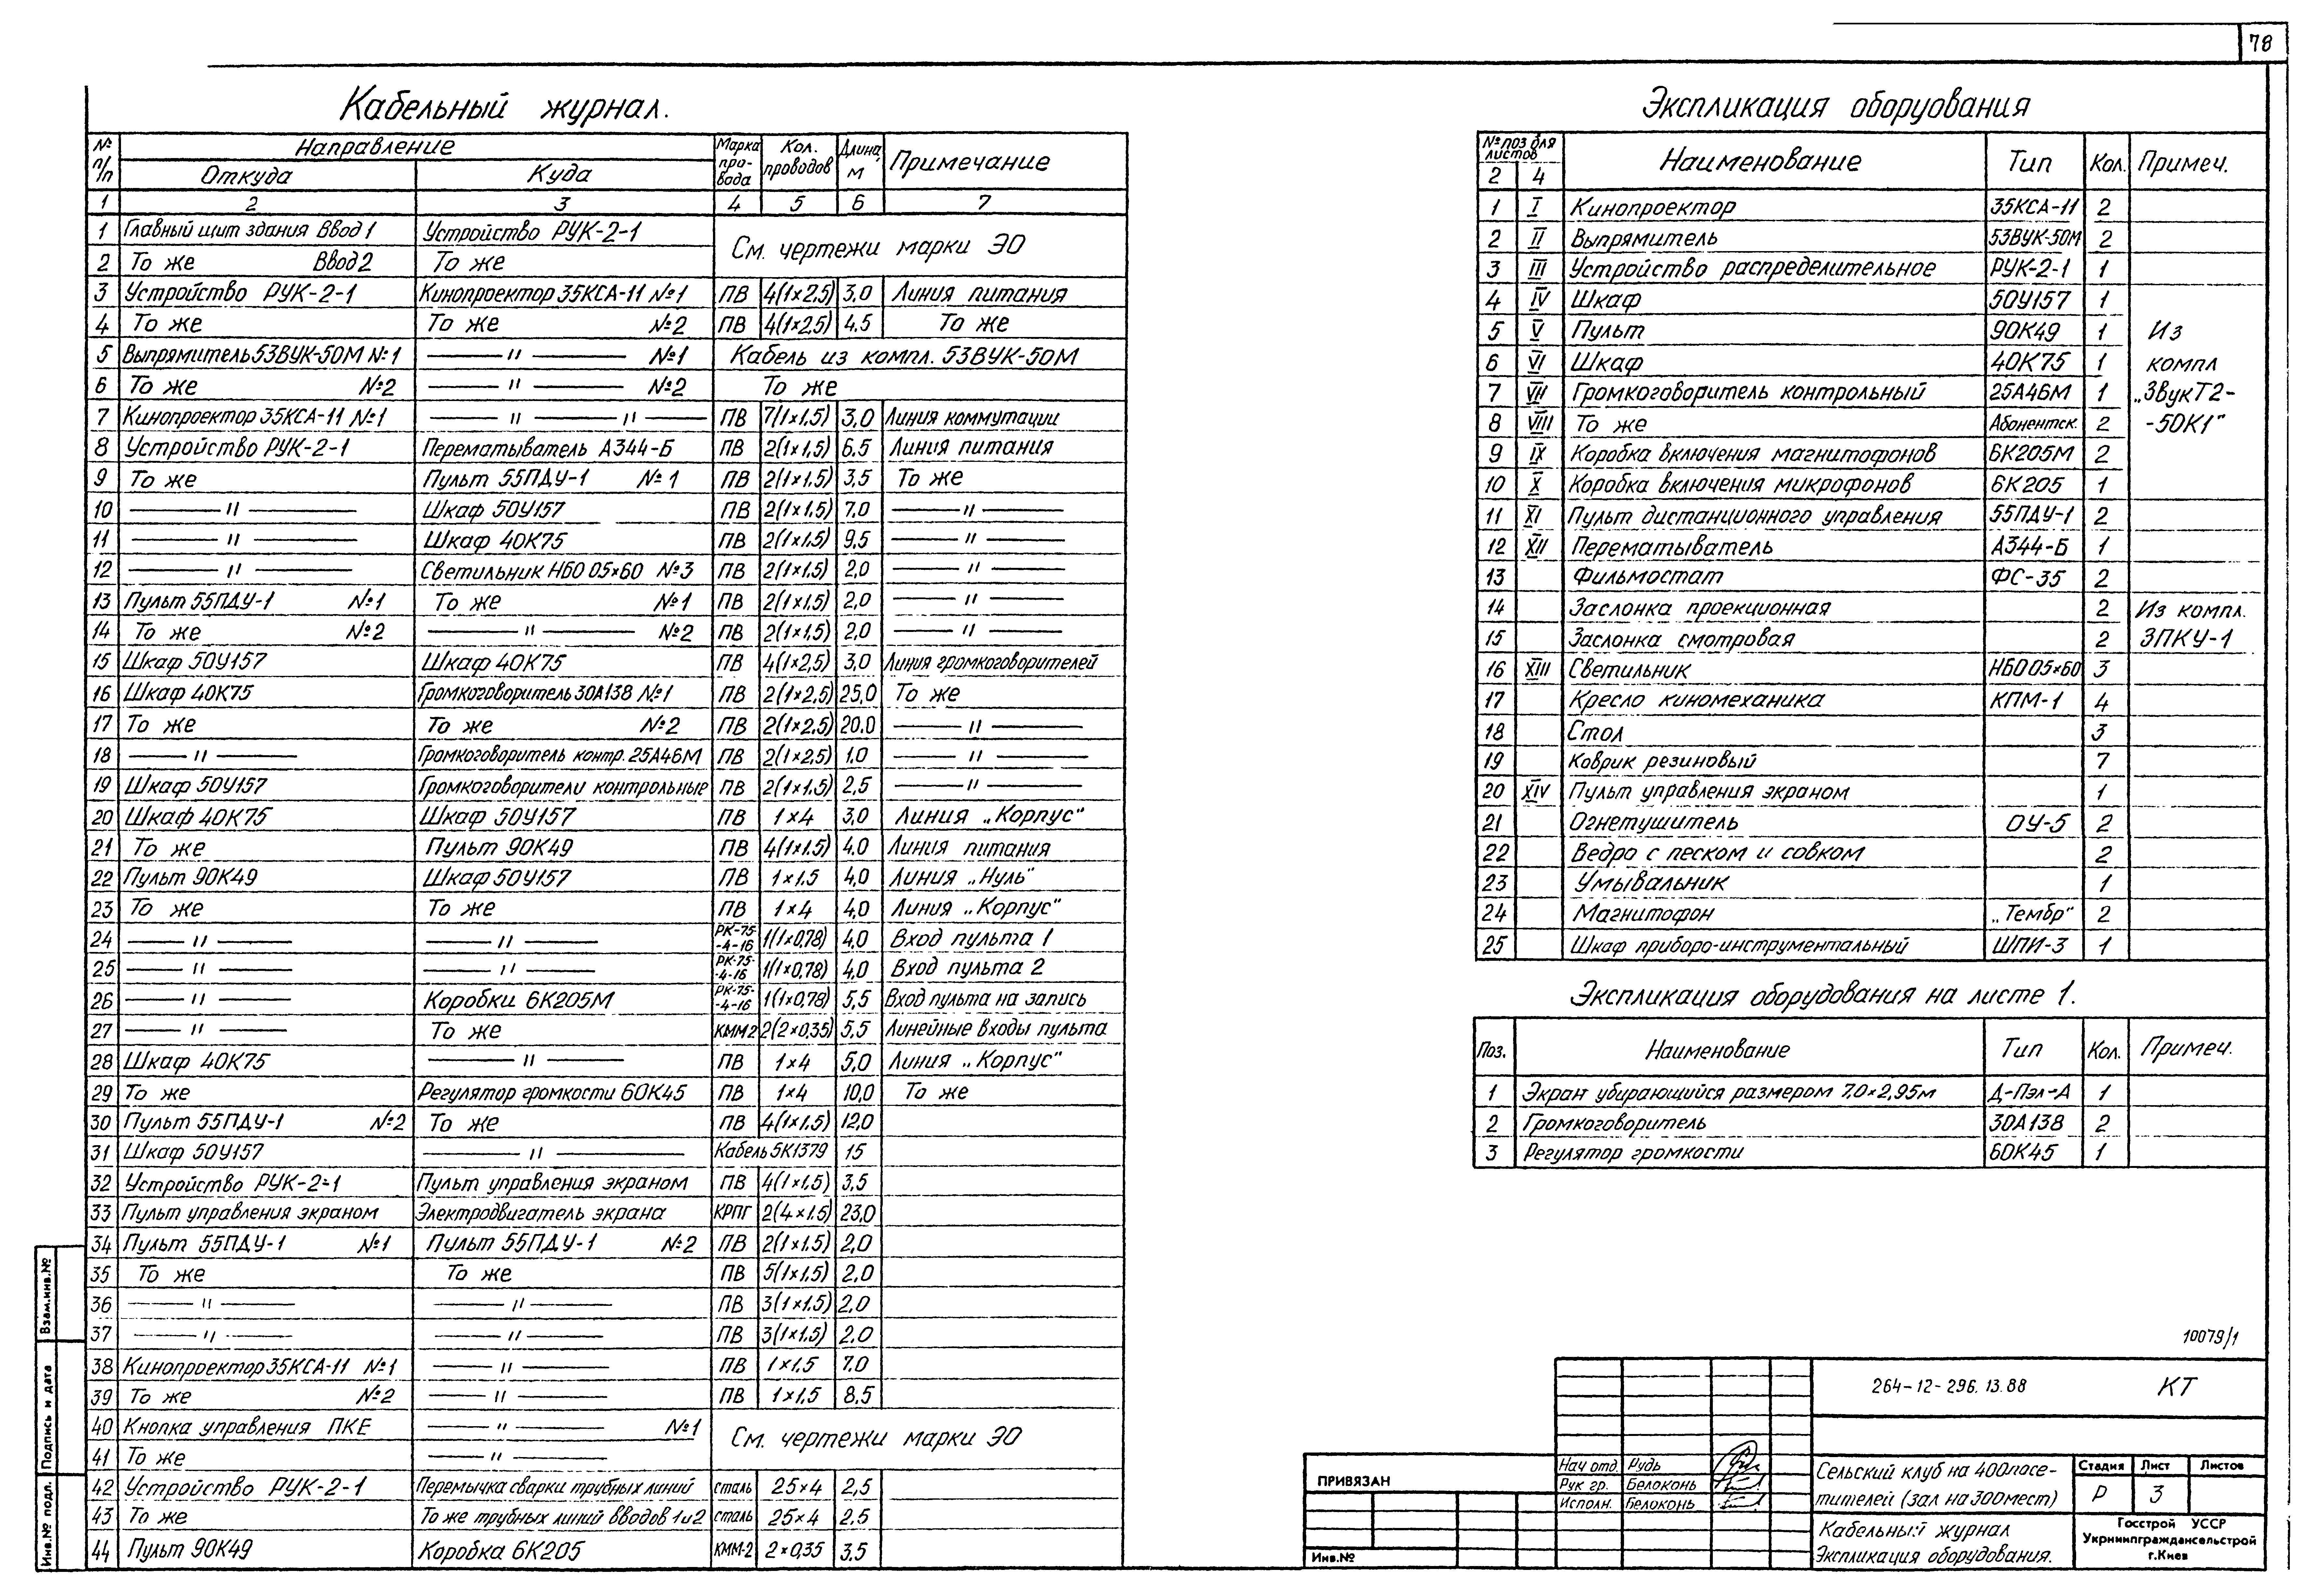 78
Кабельный журнал.
№ п/п | Направление | Марка провода | Кол. проводов | Длина, м | Примечание
Откуда | Куда
1 | 2 | 3 | 4 | 5 | 6 | 7
1 | Главный щит здания Ввод 1 | Устройство РУК-2-1 | См. чертежи марки ЭО
2 | То же Ввод 2 | То же
3 | Устройство РУК-2-1 | Кинопроектор 35КСА-11 №1 | ПВ | 4(1×2,5) | 3,0 | Линия питания
4 | То же | То же №2 | ПВ | 4(1×2,5) | 4,5 | То же
5 | Выпрямитель 53ВУК-50М №1 | —〃— №1 | Кабель из компл. 53ВУК-50М
6 | То же №2 | —〃— №2 | То же
7 | Кинопроектор 35КСА-11 №1 | —〃— 〃— | ПВ | 7(1×1,5) | 3,0 | Линия коммутации
8 | Устройство РУК-2-1 | Перематыватель А344-Б | ПВ | 2(1×1,5) | 6,5 | Линия питания
9 | То же | Пульт 55ПДУ-1 №1 | ПВ | 2(1×1,5) | 3,5 | То же
10 | —〃— | Шкаф 50У157 | ПВ | 2(1×1,5) | 7,0 | —〃—
11 | —〃— | Шкаф 40К75 | ПВ | 2(1×1,5) | 9,5 | —〃—
12 | —〃— | Светильник НБО 05×60 №3 | ПВ | 2(1×1,5) | 2,0 | —〃—
13 | Пульт 55ПДУ-1 №1 | То же №1 | ПВ | 2(1×1,5) | 2,0 | —〃—
14 | То же №2 | —〃— №2 | ПВ | 2(1×1,5) | 2,0 | —〃—
15 | Шкаф 50У157 | Шкаф 40К75 | ПВ | 4(1×2,5) | 3,0 | Линия громкоговорителей
16 | Шкаф 40К75 | Громкоговоритель 30А138 №1 | ПВ | 2(1×2,5) | 25,0 | То же
17 | То же | То же №2 | ПВ | 2(1×2,5) | 20,0 | —〃—
18 | —〃— | Громкоговоритель контр. 25А46М | ПВ | 2(1×2,5) | 1,0 | —〃—
19 | Шкаф 50У157 | Громкоговорители контрольные | ПВ | 2(1×1,5) | 2,5 | —〃—
20 | Шкаф 40К75 | Шкаф 50У157 | ПВ | 1×4 | 3,0 | Линия „Корпус"
21 | То же | Пульт 90К49 | ПВ | 4(1×1,5) | 4,0 | Линия питания
22 | Пульт 90К49 | Шкаф 50У157 | ПВ | 1×1,5 | 4,0 | Линия „Нуль"
23 | То же | То же | ПВ | 1×4 | 4,0 | Линия „Корпус"
24 | —〃— | —〃— | РК-75-4-16 | 1(1×0,78) | 4,0 | Вход пульта 1
25 | —〃— | —〃— | РК-75-4-16 | 1(1×0,78) | 4,0 | Вход пульта 2
26 | —〃— | Коробки 6К205М | РК-75-4-16 | 1(1×0,78) | 5,5 | Вход пульта на запись
27 | —〃— | То же | КММ2 | 2(2×0,35) | 5,5 | Линейные входы пульта
28 | Шкаф 40К75 | —〃— | ПВ | 1×4 | 5,0 | Линия „Корпус"
29 | То же | Регулятор громкости 60К45 | ПВ | 1×4 | 10,0 | То же
30 | Пульт 55ПДУ-1 №2 | То же | ПВ | 4(1×1,5) | 12,0
31 | Шкаф 50У157 | —〃— | Кабель 5К1379 | 15
32 | Устройство РУК-2-1 | Пульт управления экраном | ПВ | 4(1×1,5) | 3,5
33 | Пульт управления экраном | Электродвигатель экрана | КРПГ | 2(4×1,5) | 23,0
34 | Пульт 55ПДУ-1 №1 | Пульт 55ПДУ-1 №2 | ПВ | 2(1×1,5) | 2,0
35 | То же | То же | ПВ | 5(1×1,5) | 2,0
36 | —〃— | —〃— | ПВ | 3(1×1,5) | 2,0
37 | —〃— | —〃— | ПВ | 3(1×1,5) | 2,0
38 | Кинопроектор 35КСА-11 №1 | —〃— | ПВ | 1×1,5 | 7,0
39 | То же №2 | —〃— | ПВ | 1×1,5 | 8,5
40 | Кнопка управления ПКЕ | —〃— №1 | См. чертежи марки ЭО
41 | То же | —〃—
42 | Устройство РУК-2-1 | Перемычка сварки трубных линий | сталь | 25×4 | 2,5
43 | То же | То же трубных линий вводов 1 и 2 | сталь | 25×4 | 2,5
44 | Пульт 90К49 | Коробка 6К205 | КММ-2 | 2×0,35 | 3,5
Экспликация оборуования
№ поз для листов | Наименование | Тип | Кол. | Примеч.
2 | 4
1 | I | Кинопроектор | 35КСА-11 | 2
2 | II | Выпрямитель | 53ВУК-50М | 2
3 | III | Устройство распределительное | РУК-2-1 | 1
4 | IV | Шкаф | 50У157 | 1
5 | V | Пульт | 90К49 | 1 | Из
6 | VI | Шкаф | 40К75 | 1 | компл
7 | VII | Громкоговоритель контрольный | 25А46М | 1 | „ЗвукТ2-
8 | VIII | То же | Абонентск. | 2 | -50К1"
9 | IX | Коробка включения магнитофонов | 6К205М | 2
10 | X | Коробка включения микрофонов | 6К205 | 1
11 | XI | Пульт дистанционного управления | 55ПДУ-1 | 2
12 | XII | Перематыватель | А344-Б | 1
13 | Фильмостат | ФС-35 | 2
14 | Заслонка проекционная | 2 | Из компл.
15 | Заслонка смотровая | 2 | ЗПКУ-1
16 | XIII | Светильник | НБО 05×60 | 3
17 | Кресло киномеханика | КПМ-1 | 4
18 | Стол | 3
19 | Коврик резиновый | 7
20 | XIV | Пульт управления экраном | 1
21 | Огнетушитель | ОУ-5 | 2
22 | Ведро с песком и совком | 2
23 | Умывальник | 1
24 | Магнитофон | „Тембр" | 2
25 | Шкаф приборо-инструментальный | ШПИ-3 | 1
Экспликация оборудования на листе 1.
Поз. | Наименование | Тип | Кол. | Примеч.
1 | Экран убирающийся размером 7,0×2,95м | Д-Пэл-А | 1
2 | Громкоговоритель | 30А138 | 2
3 | Регулятор громкости | 60К45 | 1
10079/1
264-12-296.13.88 КТ
Нач отд. Рудь
Рук гр. Белоконь
Исполн. Белоконь
ПРИВЯЗАН
Инв.№
Сельский клуб на 400 посе-
тителей (зал на 300 мест)
Стадия | Лист | Листов
Р | 3
Кабельный журнал
Экспликация оборудования.
Госстрой УССР
Укрниипграждансельстрой
г.Киев
Взам.инв.№
Подпись и дата
Инв.№ подл.